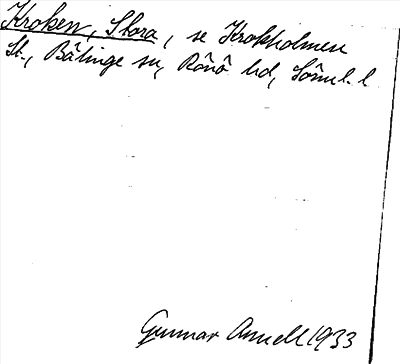 Kroken, Stora, se Krokholmen
St., Bälinge sn, Rönö hd, Söml. l.
Gunnar Arnell 1933